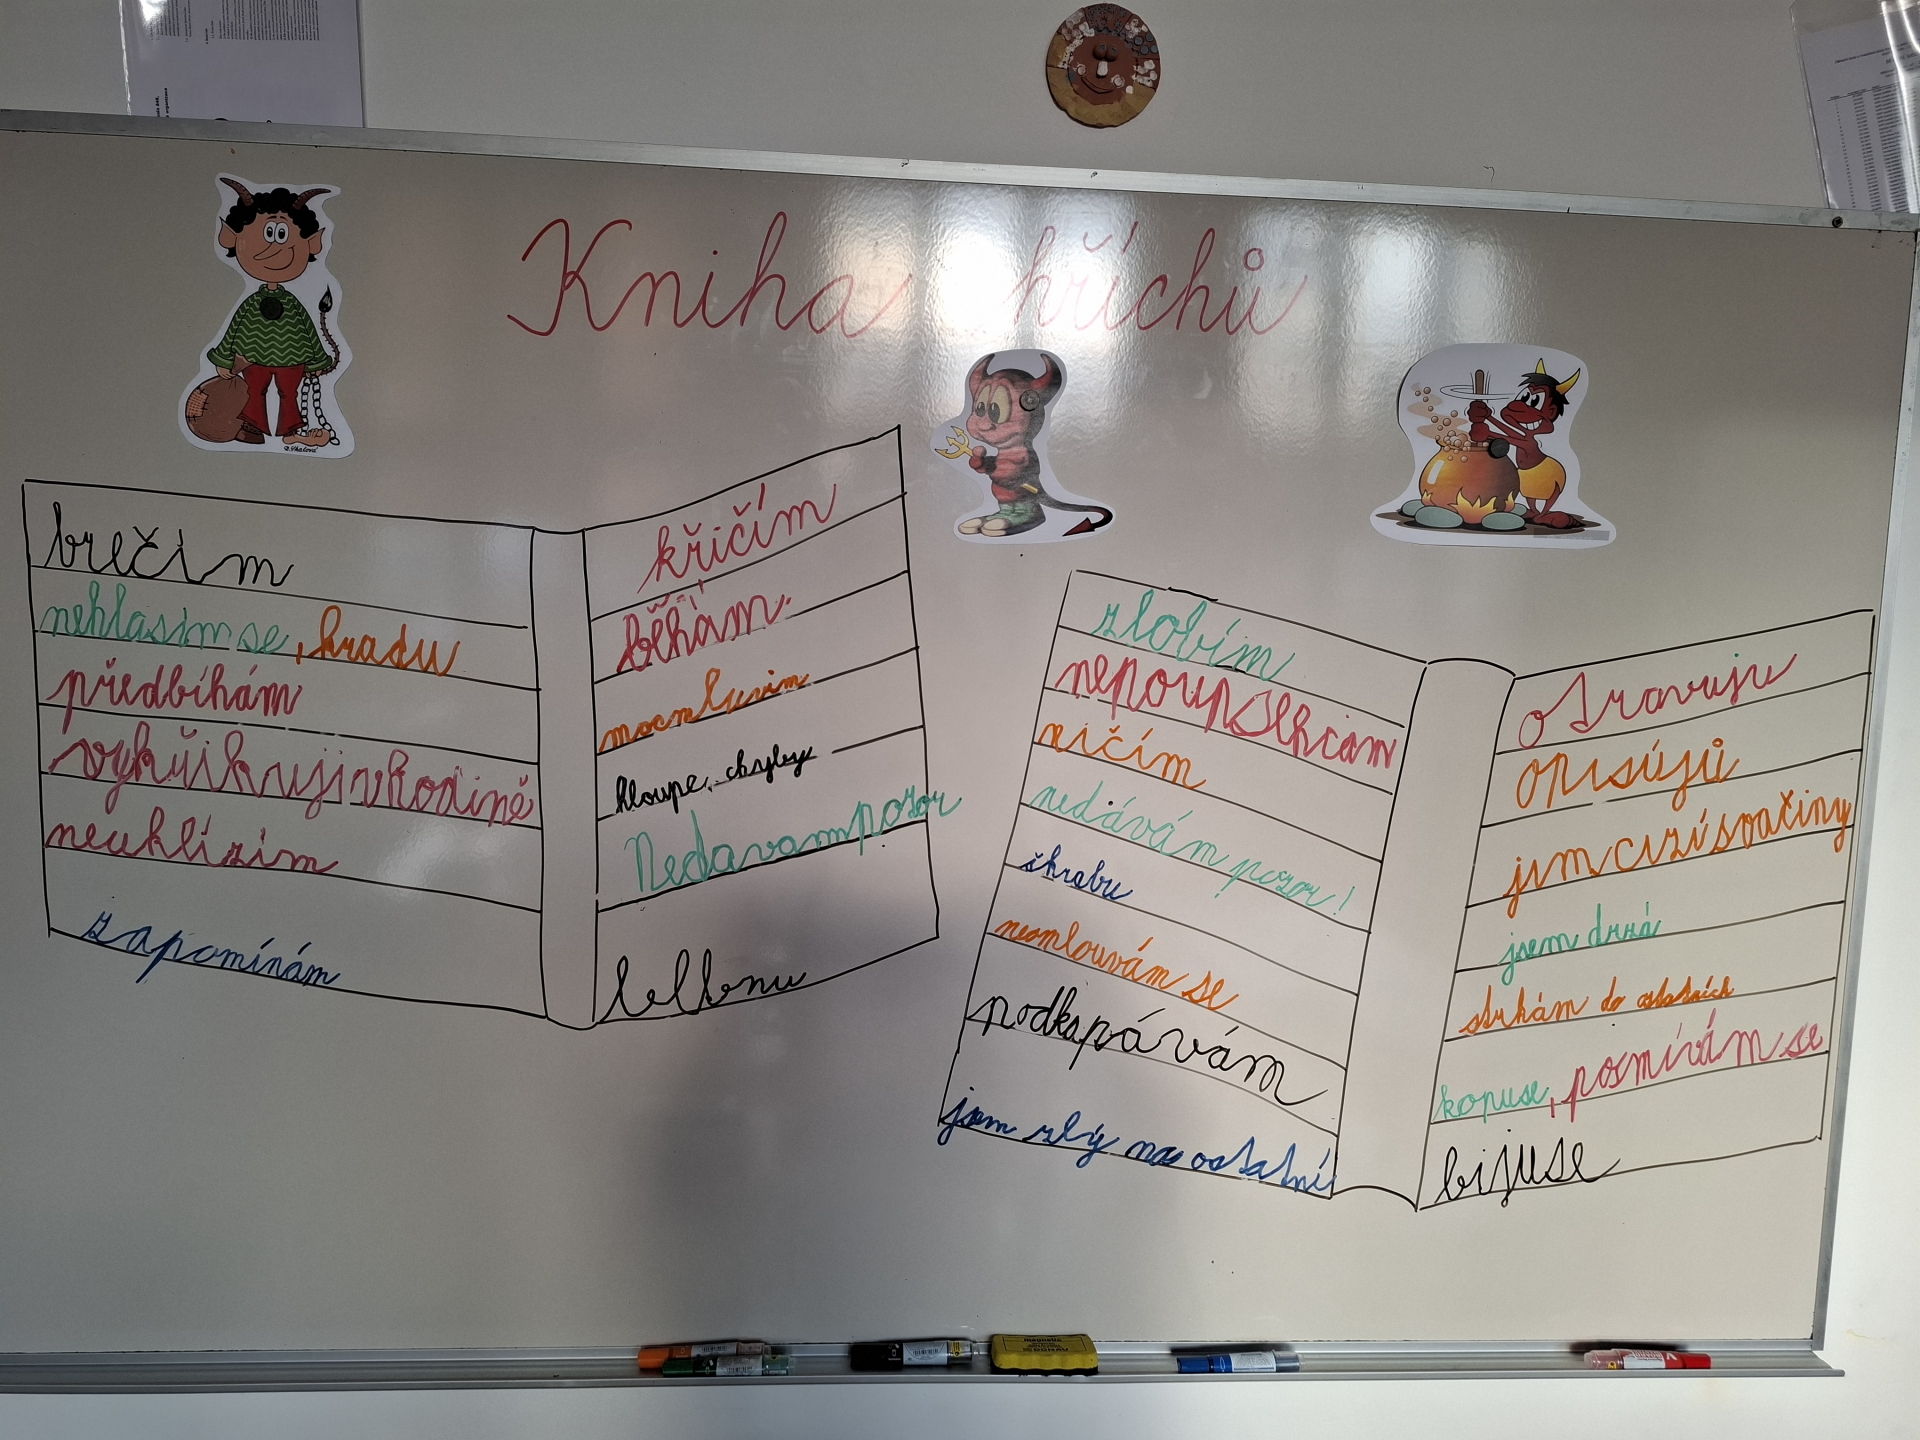 Kniha hříchů
brečím
nehlasim se, kradu
předbíhám
vykřikuji vhodině
neuklízim
zapomínám
křičím
běhám.
moc mluvim
hloupe chyby
Nedavam pozor
zlobím
ničím
nedávám pozor!
škrabu
neomlouvám se
podkopávám
jsem zlý na ostatní
otravuju
opisújů
jim cizí svačiny
jsem drzá
strkám do ostatních
kopuse, posmívám se
bijuse